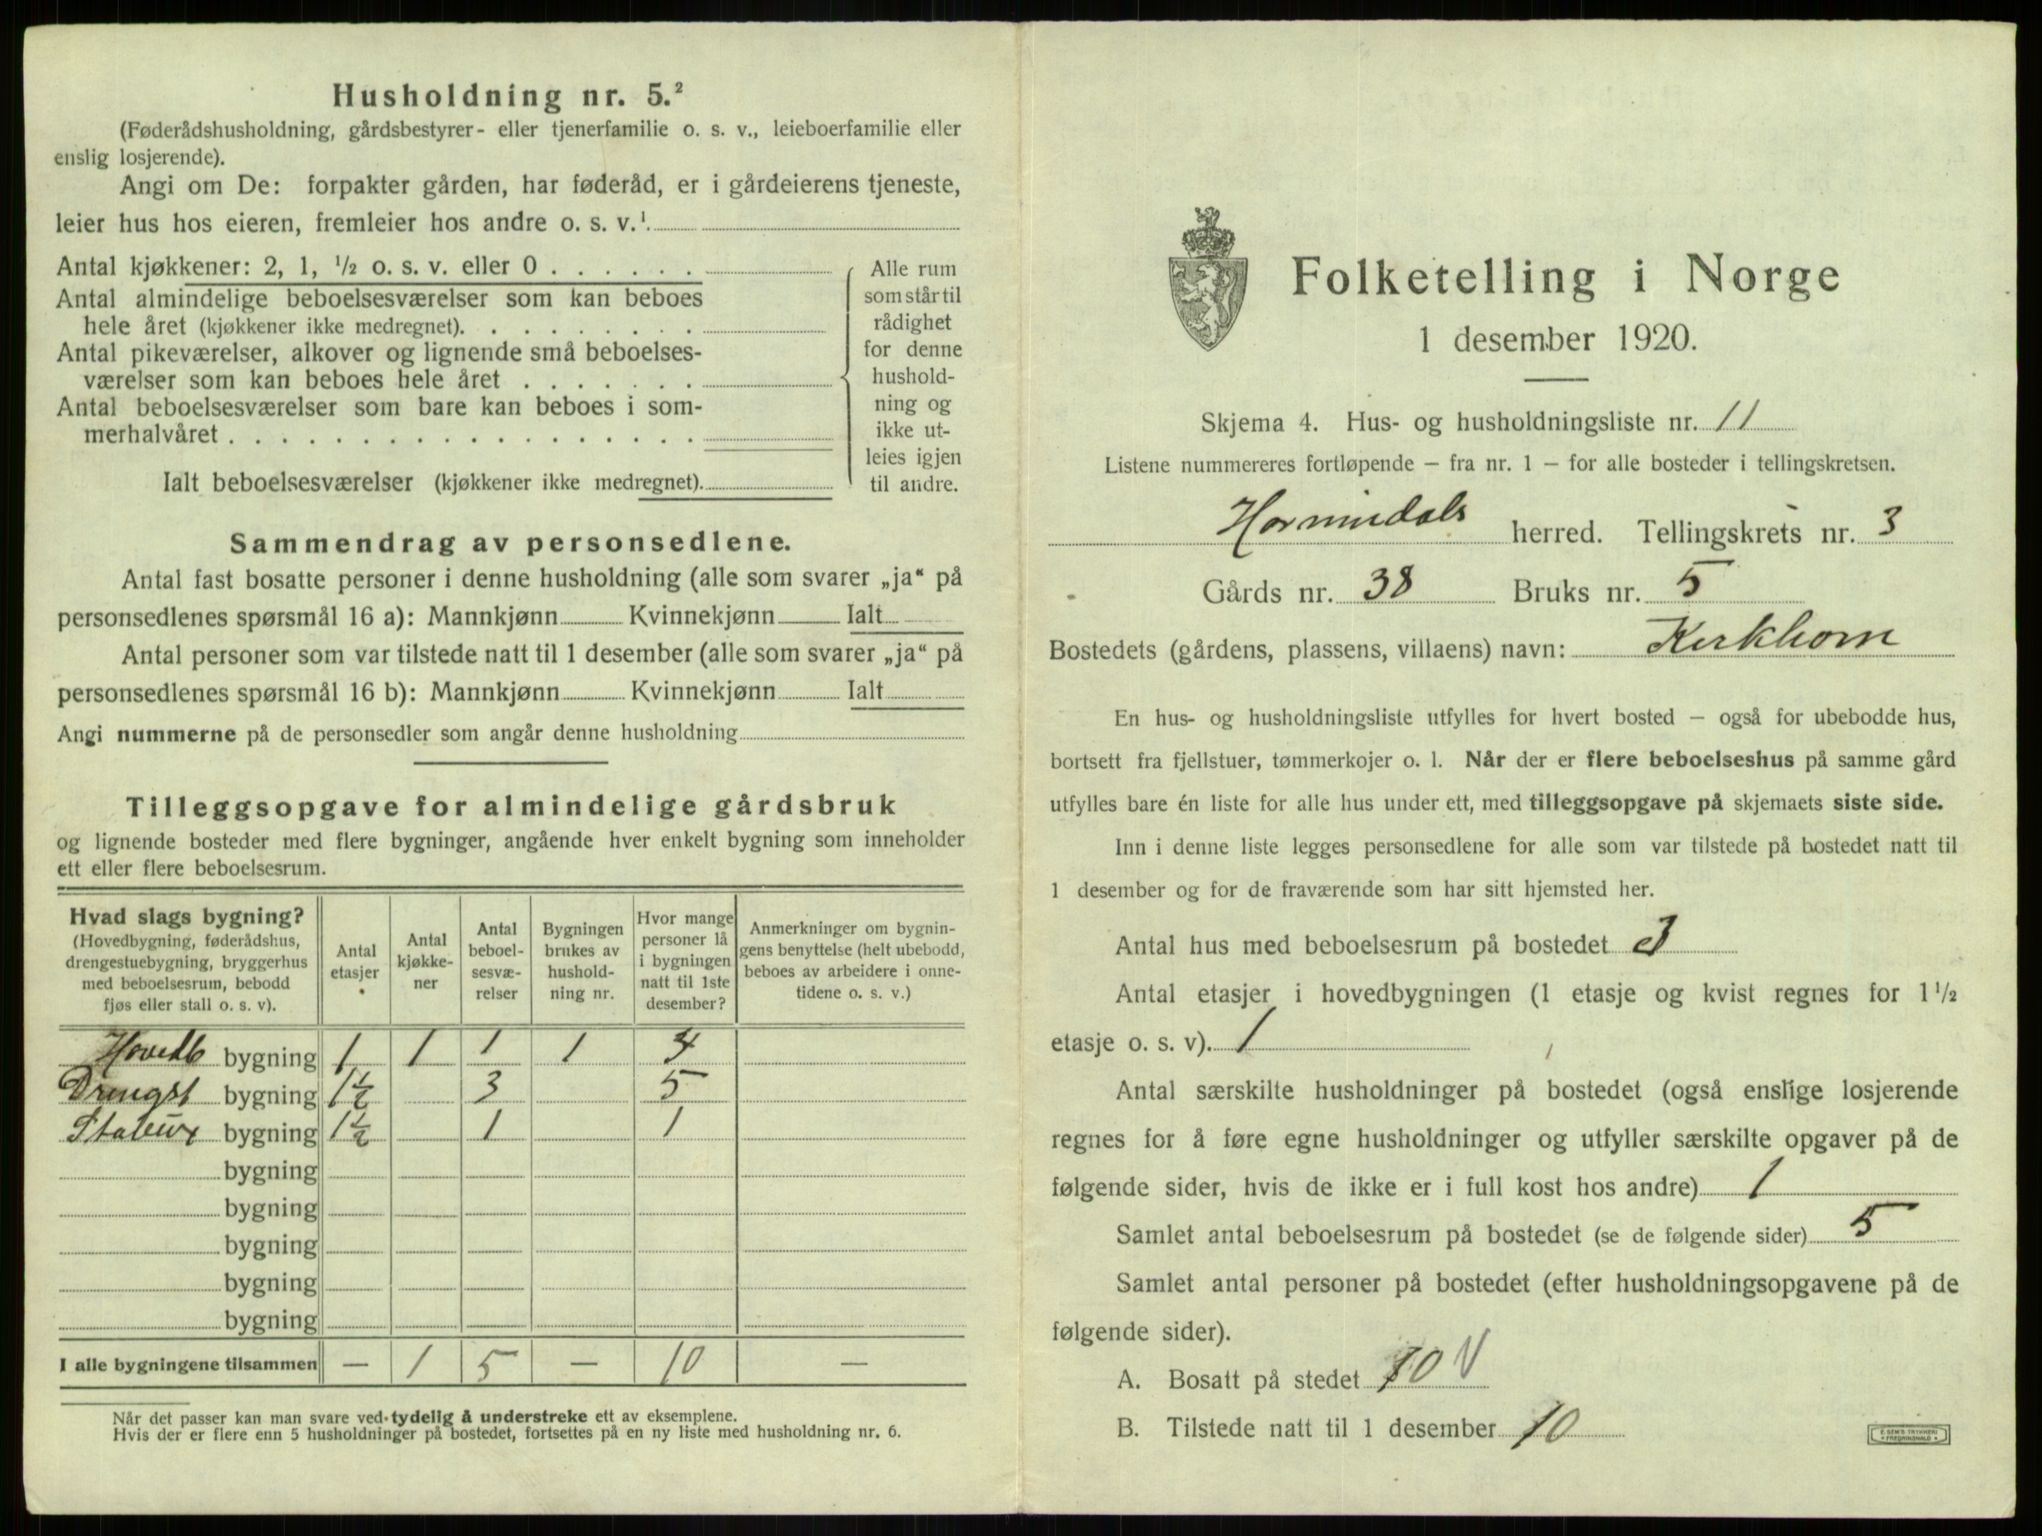 Husholdning nr. 5.²
(Føderådshusholdning, gårdsbestyrer- eller tjenerfamilie o. s. v., leieboerfamilie eller
enslig losjerende).
Angi om De: forpakter gården, har føderåd, er i gårdeierens tjeneste,
leier hus hos eieren, fremleier hos andre o. s. v.¹
Antal kjøkkener: 2, 1, ½ o. s. v. eller 0
Antal almindelige beboelsesværelser som kan beboes
hele året (kjøkkener ikke medregnet).
Antal pikeværelser, alkover og lignende små beboelses-
værelser som kan beboes hele året
Antal beboelsesværelser som bare kan beboes i som-
merhalvåret
Ialt beboelsesværelser (kjøkkener ikke medregnet).
Alle rum
som står til
rådighet
for denne
hushold-
ning og
ikke ut-
leies igjen
til andre.
Sammendrag av personsedlene.
Antal fast bosatte personer i denne husholdning (alle som svarer „ja“ på
personsedlenes spørsmål 16 a): Mannkjønn Kvinnekjønn Ialt
Antal personer som var tilstede natt til 1 desember (alle som svarer „ja“ på
personsedlenes spørsmål 16 b): Mannkjønn Kvinnekjønn Ialt
Angi nummerne på de personsedler som angår denne husholdning
Tilleggsopgave for almindelige gårdsbruk
og lignende bosteder med flere bygninger, angående hver enkelt bygning som inneholder
ett eller flere beboelsesrum.
Hvad slags bygning?
(Hovedbygning, føderådshus,
drengestuebygning, bryggerhus
med beboelsesrum, bebodd
fjøs eller stall o. s. v).
Antal
etasjer
Antal
kjøkke-
ner
Antal
beboel-
sesvæ-
relser
Bygningen
brukes av
hushold-
ning nr.
Hvor mange
personer lå
i bygningen
natt til 1ste
desember?
Anmerkninger om bygnin-
gens benyttelse (helt ubebodd,
beboes av arbeidere i onne-
tidene o. s. v.)
Hovedb bygning 1 1 1 1 4
Drengst bygning 1½ 3 5
Stabur bygning 1½ 1 1
bygning
bygning
bygning
bygning
bygning
I alle bygningene tilsammen — 1 5 — 10 —
Når det passer kan man svare ved tydelig å understreke ett av eksemplene.
Hvis der er flere enn 5 husholdninger på bostedet, fortsettes på en ny liste med husholdning nr. 6.
Folketelling i Norge
1 desember 1920.
Skjema 4. Hus- og husholdningsliste nr. 11
Listene nummereres fortløpende – fra nr. 1 – for alle bosteder i tellingskretsen.
Hornindals herred. Tellingskrets nr. 3
Gårds nr. 38 Bruks nr. 5
Bostedets (gårdens, plassens, villaens) navn: Kirkhorn
En hus- og husholdningsliste utfylles for hvert bosted – også for ubebodde hus,
bortsett fra fjellstuer, tømmerkojer o. l. Når der er flere beboelseshus på samme gård
utfylles bare én liste for alle hus under ett, med tilleggsopgave på skjemaets siste side.
Inn i denne liste legges personsedlene for alle som var tilstede på bostedet natt til
1 desember og for de fraværende som har sitt hjemsted her.
Antal hus med beboelsesrum på bostedet 3
Antal etasjer i hovedbygningen (1 etasje og kvist regnes for 1½
etasje o. s. v). 1
Antal særskilte husholdninger på bostedet (også enslige losjerende
regnes for å føre egne husholdninger og utfyller særskilte opgaver på de
følgende sider, hvis de ikke er i full kost hos andre) 1
Samlet antal beboelsesrum på bostedet (se de følgende sider) 5
Samlet antal personer på bostedet (efter husholdningsopgavene på de
følgende sider).
A. Bosatt på stedet 10 V
B. Tilstede natt til 1 desember 10
E. SEM'S TRYKKERI
FREDRIKSHALD